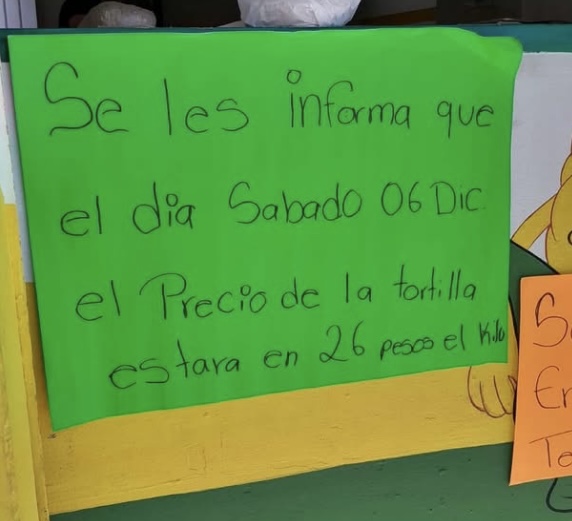 Se les informa que
el dia Sabado 06 Dic.
el Precio de la tortilla
estara en 26 pesos el Kilo
S
En
Te